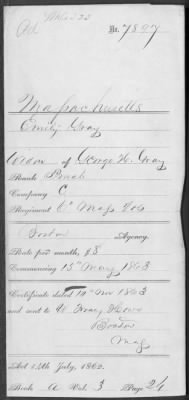 No. 7897
Massachusetts
Emily Gray
Widow of George H. Gray
Rank Privt
Company C
Regiment 6" Mass Vols
Boston Agency.
Rate per month, $8
Commencing 15" May 1863
Certificate dated 14" Nov 1863
and sent to W. Tracy
Boston
Mass
Act 14th July, 1862.
Book A Vol. 3 Page 24